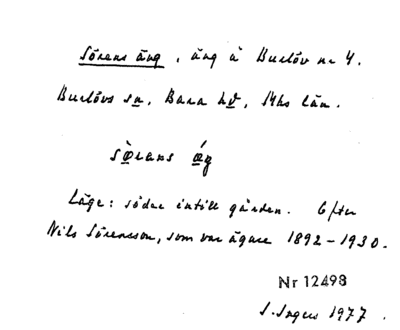 Sörens äng, äng å Burlöv nr 4.
Burlövs sn, Bara hd, Mhs län.
sø̀rans ǽg
Läge: söder intill gården. Efter
Nils Sörensson, som var ägare 1892-1930.
Nr 12498
S. Ingers 1977.